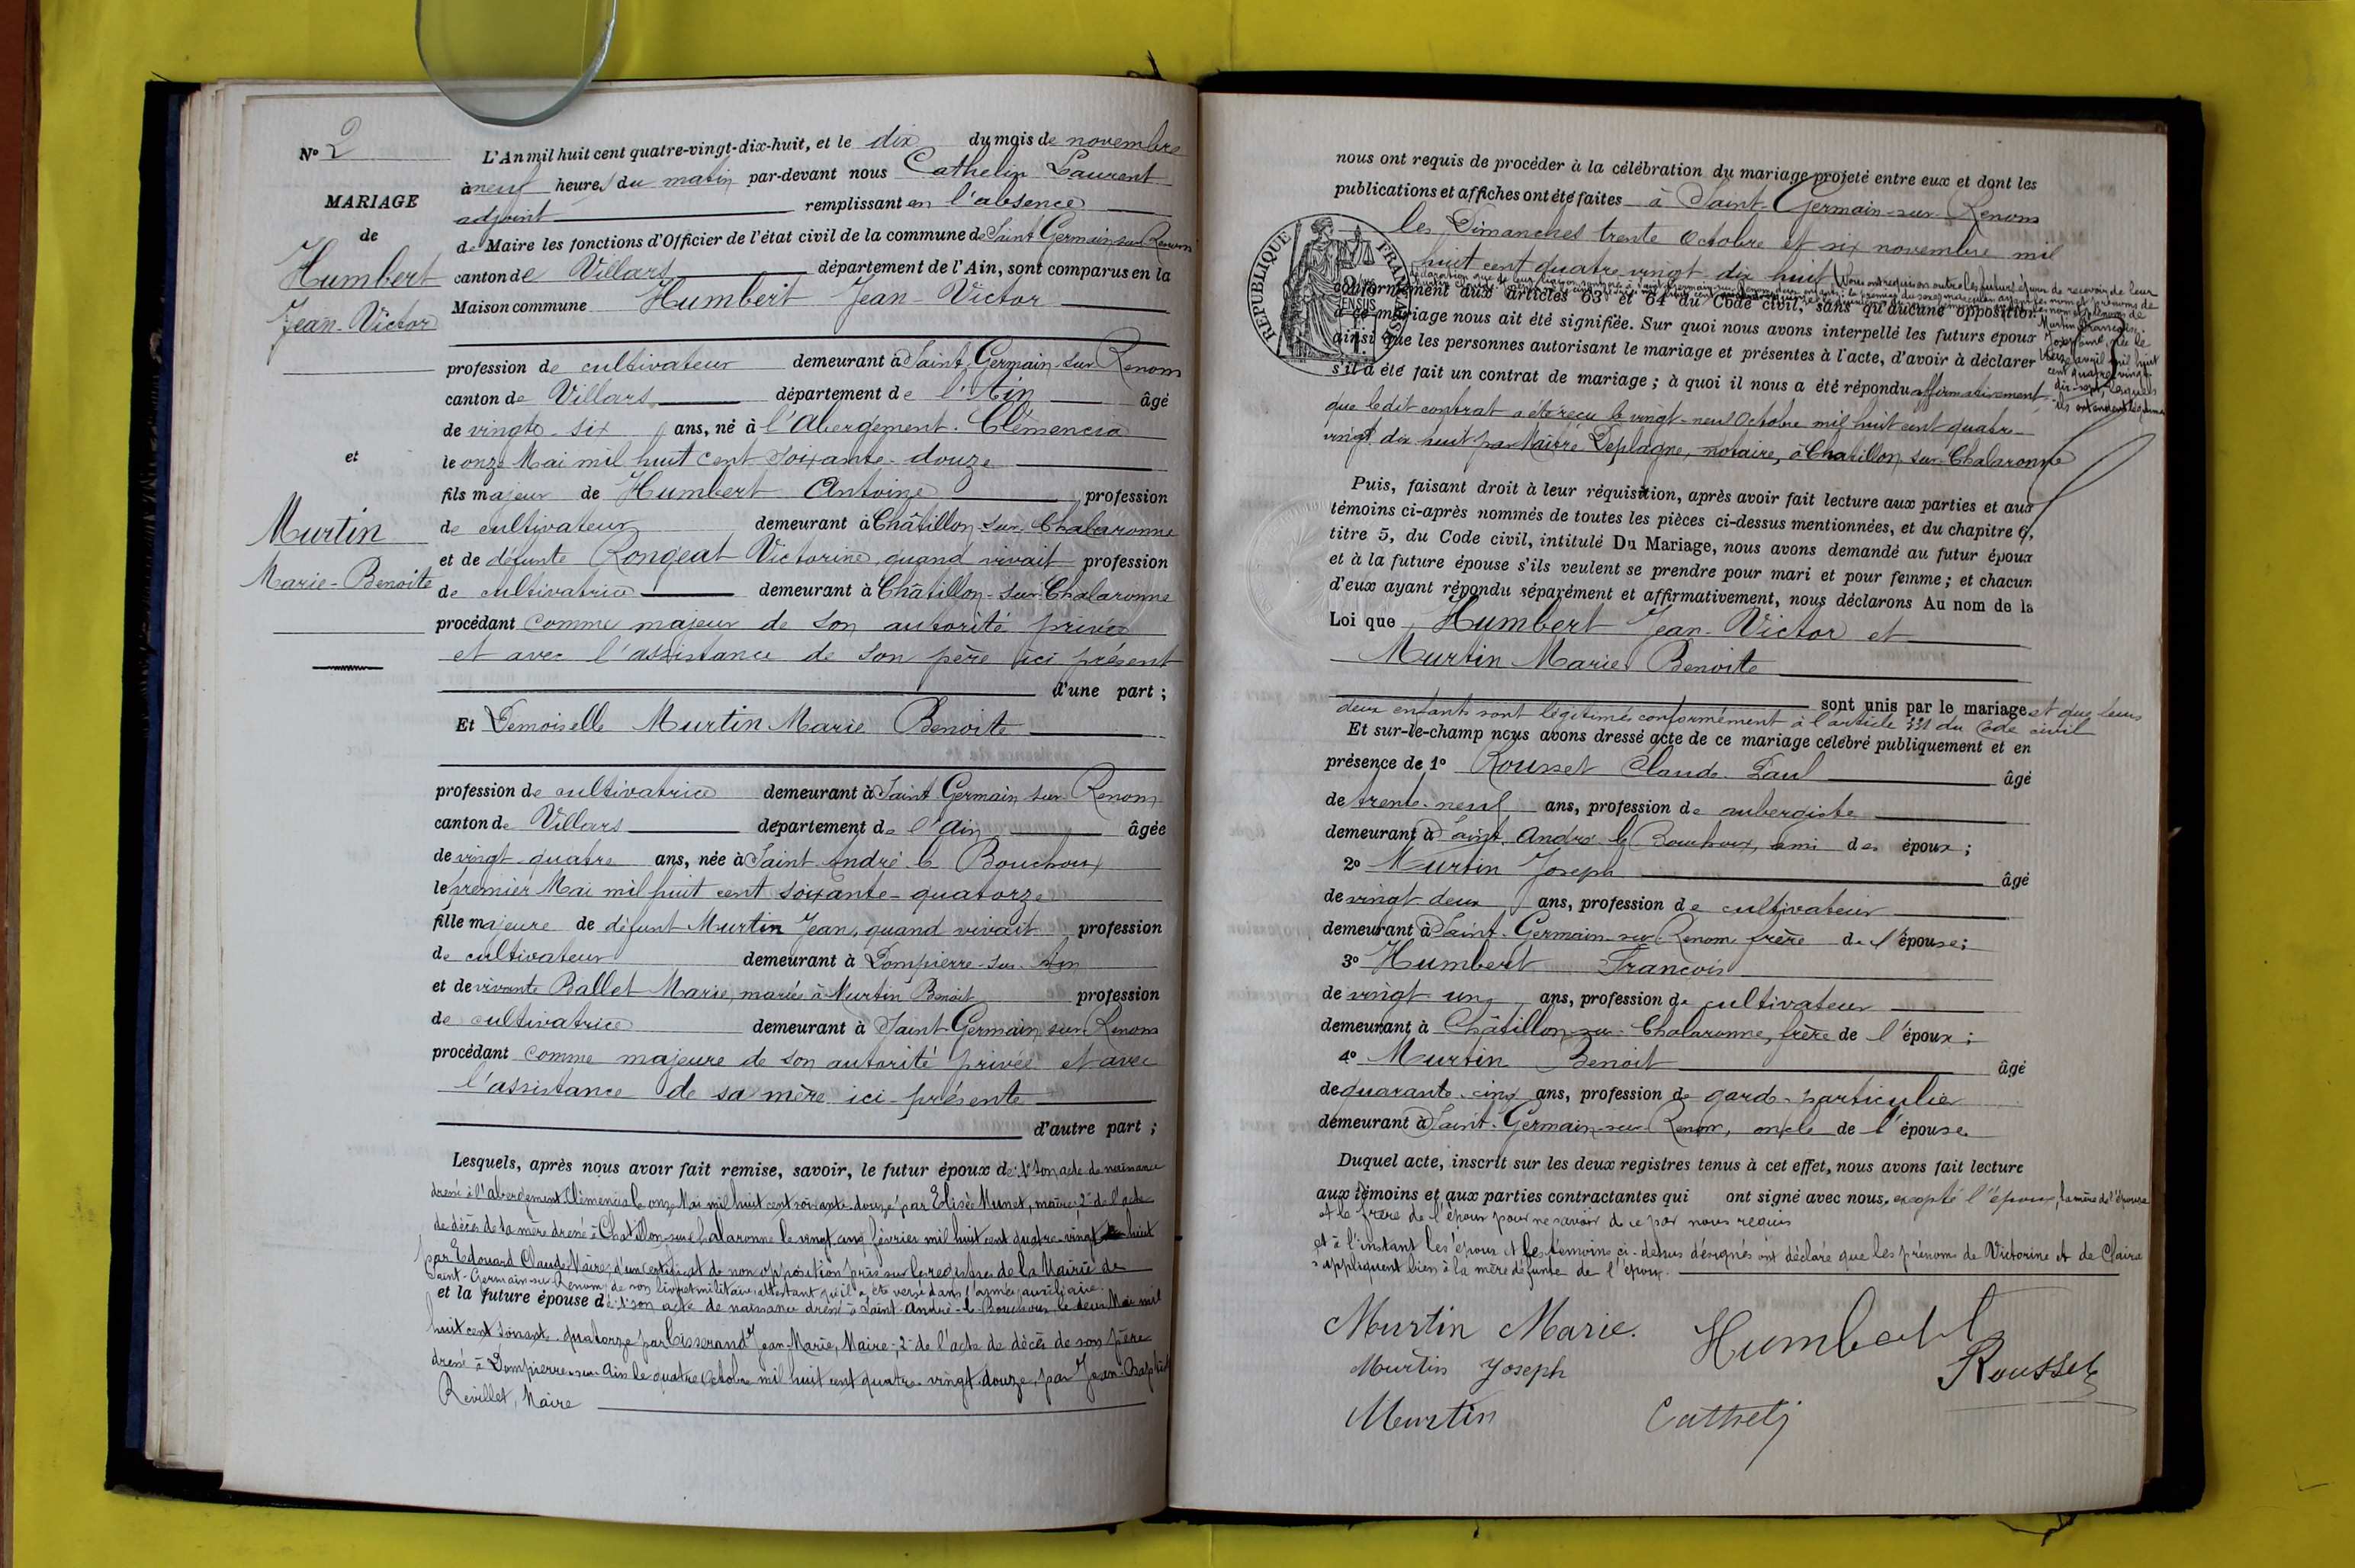 N° 2
MARIAGE
de
Humbert
Jean-Victor
et
Murtin
Marie-Benoite
L'An mil huit cent quatre-vingt-dix-huit, et le dix du mois de novembre
à neuf heures du matin par-devant nous Cathelin Laurent
adjoint remplissant en l'absence
de Maire les fonctions d'Officier de l'état civil de la commune de Saint Germain sur Renom
canton de Villars département de l'Ain, sont comparus en la
Maison commune Humbert Jean-Victor
profession de cultivateur demeurant à Saint-Germain-sur-Renom
canton de Villars département de l'Ain âgé
de vingt-six ans, né à l'Abergement-Clémencia
le onze Mai mil huit cent soixante-douze
fils majeur de Humbert Antoine profession
de cultivateur demeurant à Châtillon-sur-Chalaronne
et de défunte Rongeat Victorine, quand vivait profession
de cultivatrice demeurant à Châtillon-sur-Chalaronne
procédant comme majeur de son autorité privée
et avec l'assistance de son père ici présent
d'une part ;
Et Demoiselle Murtin Marie Benoite
profession de cultivatrice demeurant à Saint Germain sur Renom
canton de Villars département de l'Ain âgée
de vingt-quatre ans, née à Saint André le Bouchoux
le premier Mai mil huit cent soixante-quatorze
fille majeure de défunt Murtin Jean, quand vivait profession
de cultivateur demeurant à Dompierre-sur-Ain
et de vivante Ballet Marie, mariée à Murtin Benoit profession
de cultivatrice demeurant à Saint-Germain sur Renom
procédant comme majeure de son autorité privée et avec
l'assistance de sa mère ici-présente
d'autre part ;
Lesquels, après nous avoir fait remise, savoir, le futur époux de: 1° son acte de naissance
dressé à l'abergement Clémencia le onze Mai mil huit cent soixante-douze par Elisée Munet, maire; 2° de l'acte
de décès de sa mère dressé à Chatillon-sur-Chalaronne le vingt cinq février mil huit cent quatre-vingt huit
par Edouard Claude, Maire; d'un certificat de non opposition pris sur le registre de la Mairie de
Saint-Germain-sur-Renom; de son livret militaire attestant qu'il a été versé dans l'armée auxiliaire.
et la future épouse de: 1° son acte de naissance dressé à Saint-André-le-Bouchoux, le deux Mai mil
huit cent soixante-quatorze par Cisserand Jean-Marie, Maire; 2° de l'acte de décès de son père
dressé à Dompierre-sur-Ain le quatre Octobre mil huit cent quatre-vingt-douze, par Jean-Baptiste
Revillet, Maire
nous ont requis de procéder à la célébration du mariage projeté entre eux et dont les
publications et affiches ont été faites à Saint-Germain-sur-Renom
les Dimanches trente Octobre et six novembre mil
huit cent quatre vingt dix huit
Nous ont requis en outre les futurs époux de recevoir de leur
conformément aux articles 63 et 64 du Code civil, sans qu'aucune opposition
à ce mariage nous ait été signifiée. Sur quoi nous avons interpellé les futurs époux
ainsi que les personnes autorisant le mariage et présentes à l'acte, d'avoir à déclarer
s'il a été fait un contrat de mariage ; à quoi il nous a été répondu affirmativement
que ledit contrat a été reçu le vingt-neuf Octobre mil huit cent quatre
vingt dix huit par Maître Deplagne, notaire, à Chatillon sur-Chalaronne
Puis, faisant droit à leur réquisition, après avoir fait lecture aux parties et aux
témoins ci-après nommés de toutes les pièces ci-dessus mentionnées, et du chapitre 6,
titre 5, du Code civil, intitulé Du Mariage, nous avons demandé au futur époux
et à la future épouse s'ils veulent se prendre pour mari et pour femme ; et chacun
d'eux ayant répondu séparément et affirmativement, nous déclarons Au nom de la
Loi que Humbert Jean-Victor et
Murtin Marie Benoite
sont unis par le mariage et que leurs
deux enfants sont légitimés conformément à l'article 331 du Code civil
Et sur-le-champ nous avons dressé acte de ce mariage célébré publiquement et en
présence de 1° Rousset Claude-Paul âgé
de trente-neuf ans, profession de aubergiste
demeurant à Saint-André le Bouchoux, ami des époux ;
2° Murtin Joseph âgé
de vingt deux ans, profession de cultivateur
demeurant à Saint-Germain-sur-Renom frère de l'épouse ;
3° Humbert François
de vingt un ans, profession de cultivateur
demeurant à Châtillon-sur-Chalaronne, frère de l'époux ;
4° Murtin Benoit âgé
de quarante-cinq ans, profession de garde-particulier
demeurant à Saint-Germain-sur-Renom, oncle de l'épouse
Duquel acte, inscrit sur les deux registres tenus à cet effet, nous avons fait lecture
aux témoins et aux parties contractantes qui ont signé avec nous, excepté l'époux, la mère de l'épouse
et le frère de l'époux pour ne savoir de ce par nous requis
et à l'instant les époux et les témoins ci-dessus désignés ont déclaré que les prénoms de Victorine et de Claire
s'appliquent bien à la mère défunte de l'époux.
Murtin Marie. Humbert
Murtin Joseph Rousset
Murtin Cathelin
RÉPUBLIQUE FRANÇAISE